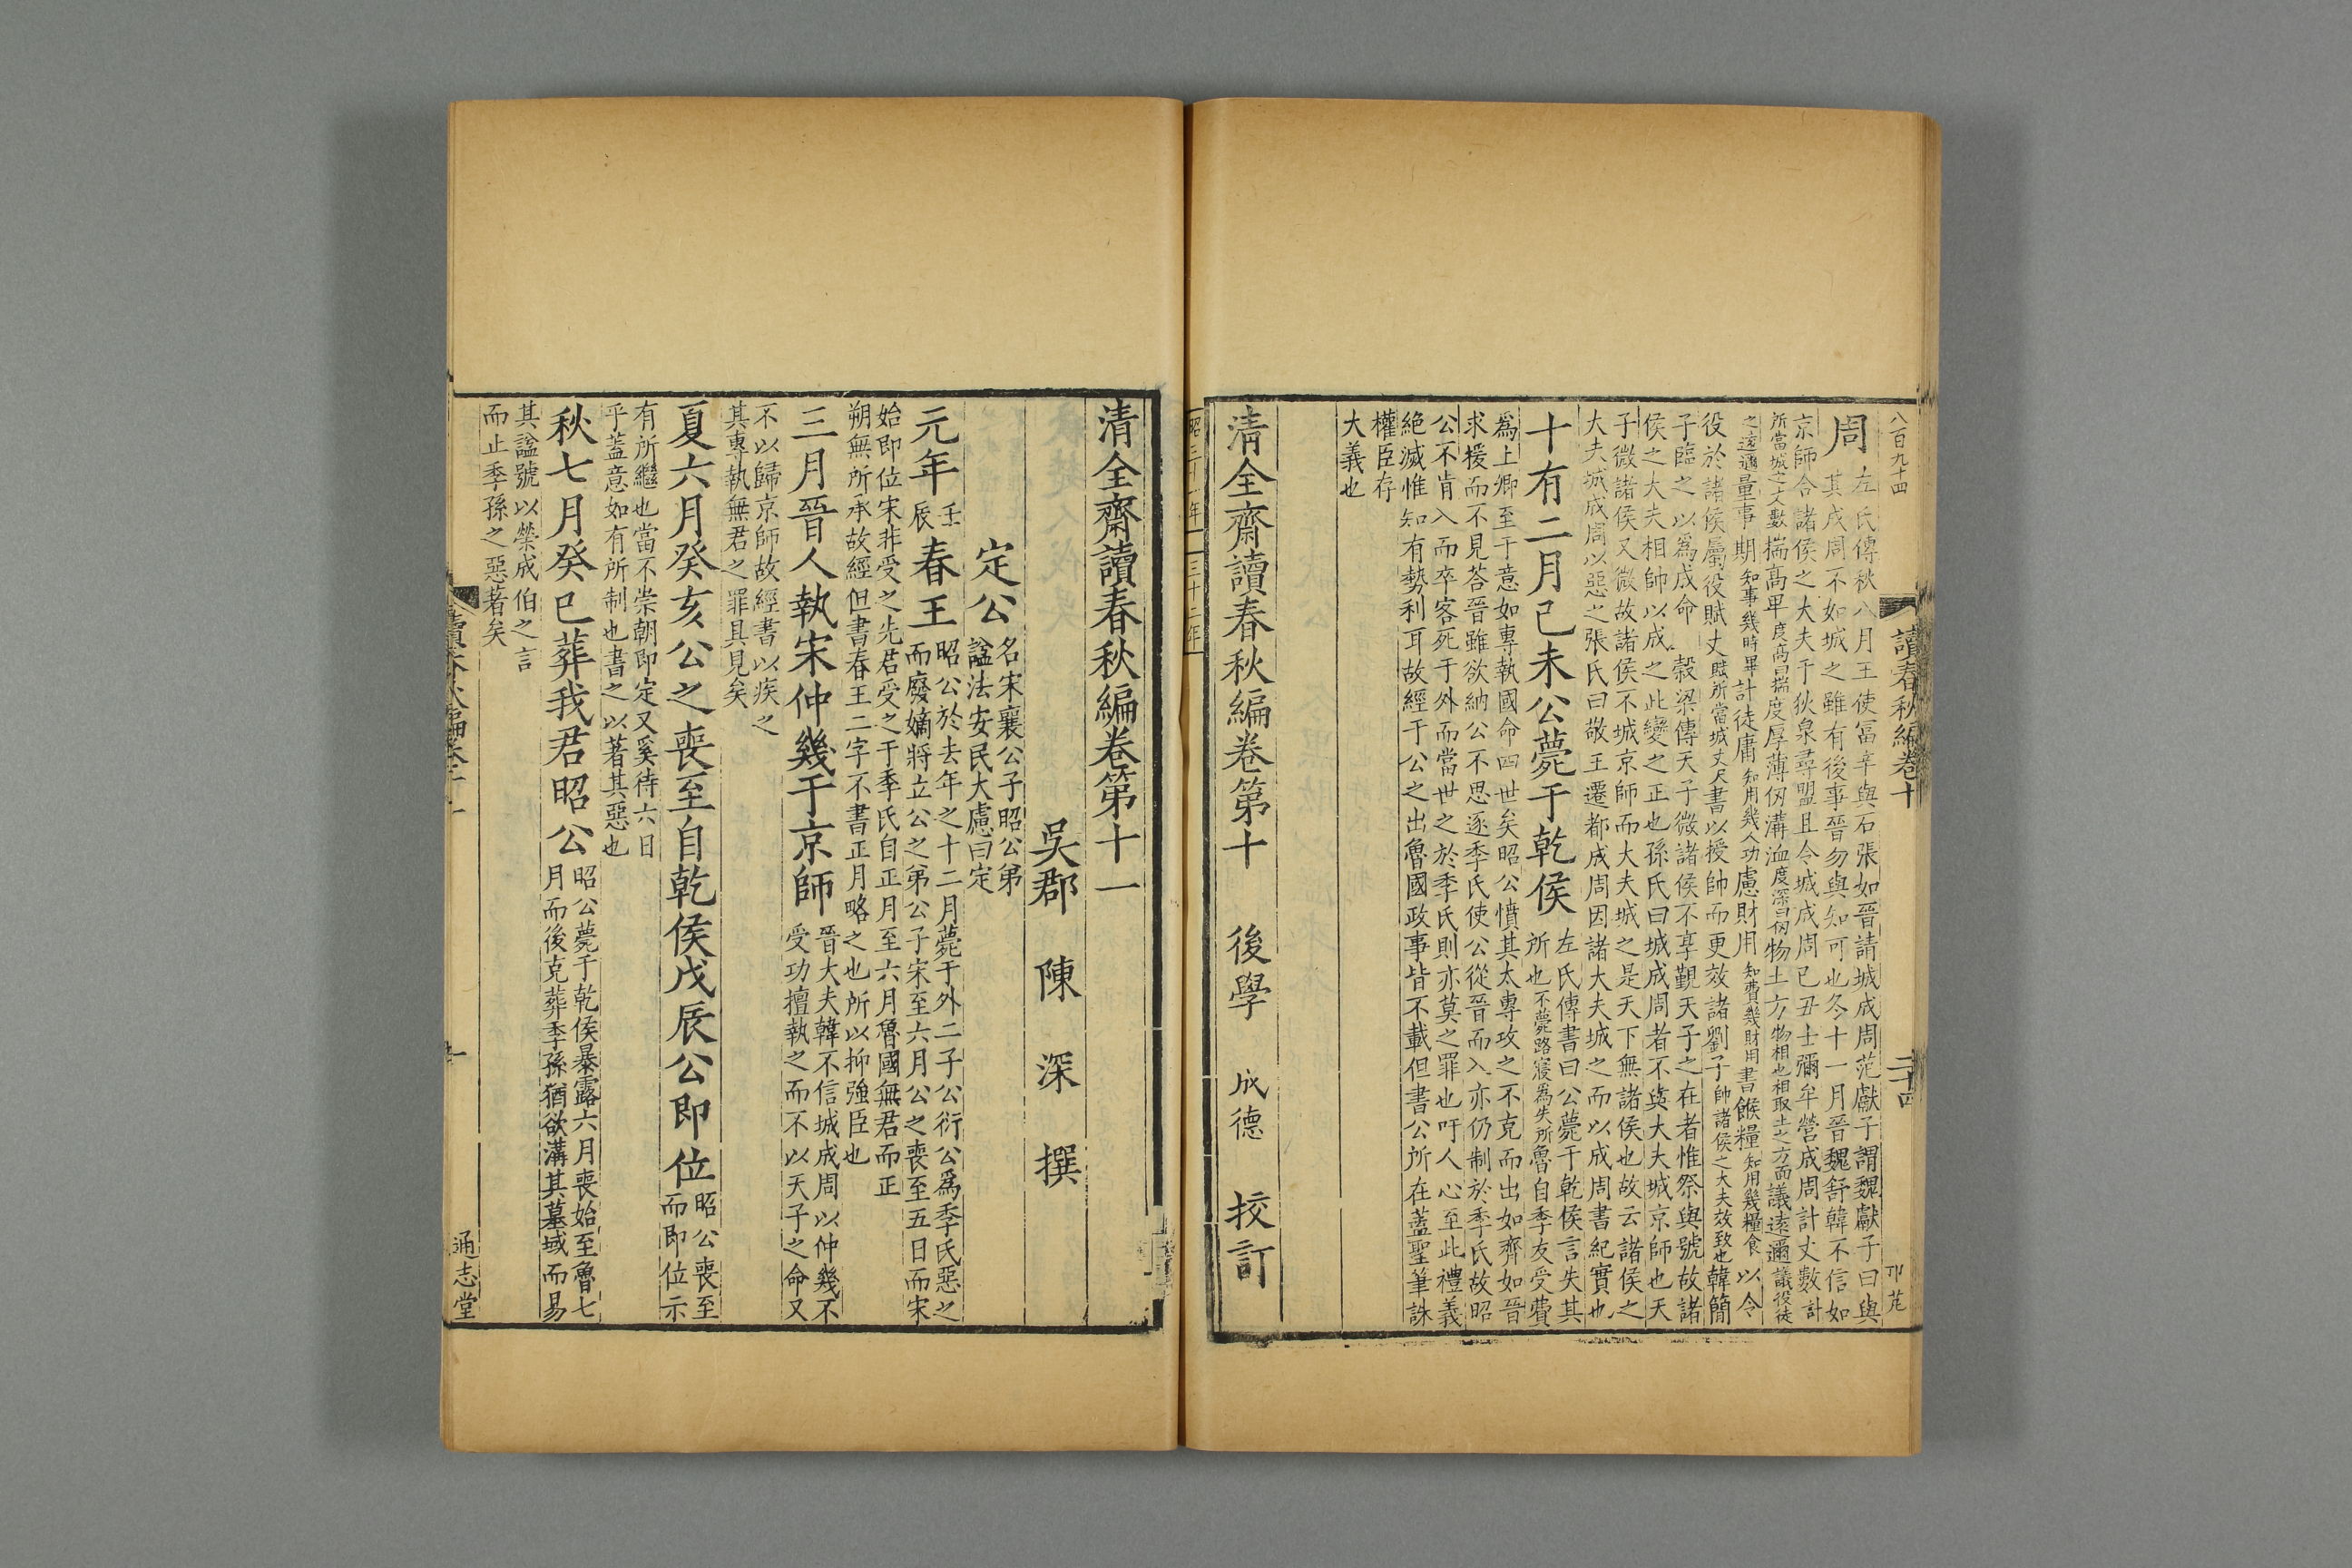 八百九十四
讀春秋編卷十
二十四
周
左氏傳秋八月王使富辛與石張如晉請城成周范獻子謂魏獻子曰與
其戍周不如城之雖有後事晉勿與知可也冬十一月晉魏舒韓不信如
京師合諸侯之大夫于狄泉尋盟且令城成周己丑士彌牟營成周計丈數計
所當城之丈數揣高卑度高曰揣度厚薄仞溝洫度深曰仞物土方物相也相取土之方面議遠邇議役徒
之遠邇量事期知事幾時畢計徒庸知用幾人功慮財用知費幾財用書餱糧知用幾糧食以令
役於諸侯屬役賦丈賦所當城丈尺書以授帥而更效諸劉子帥諸侯之大夫效致也韓簡
子臨之以爲成命
穀梁傳天子微諸侯不享覲天子之在者惟祭與號故諸
侯之大夫相帥以成之此變之正也孫氏曰城成周者不與大夫城京師也天
子微諸侯又微故諸侯不城京師而大夫城之是天下無諸侯也故云諸侯之
大夫城成周以惡之張氏曰敬王遷都成周因諸大夫城之而以成周書紀實也
十有二月己未公薨于乾侯
左氏傳書曰公薨于乾侯言失其
所也不薨路寢爲失所魯自季友受費
爲上卿至于意如專執國命四世矣昭公憤其太專攻之不克而出如齊如晉
求援而不見荅晉雖欲納公不思逐季氏使公從晉而入亦仍制於季氏故昭
公不肯入而卒客死于外而當世之於季氏則亦莫之罪也吁人心至此禮義
絕滅惟知有勢利耳故經于公之出魯國政事皆不載但書公所在蓋聖筆誅
權臣存
大義也
清全齋讀春秋編卷第十
後學
成德
挍訂
昭三十一年
三十二年
清全齋讀春秋編卷第十一
吳郡
陳
深
撰
定公
名宋襄公子昭公弟
諡法安民大慮曰定
元年
壬
辰
春王
昭公於去年之十二月薨于外二子公衍公爲季氏惡之
而廢嫡將立公之弟公子宋至六月公之喪至五日而宋
始即位宋非受之先君受之于季氏自正月至六月魯國無君而正
朔無所承故經但書春王二字不書正月略之也所以抑強臣也
三月晉人執宋仲幾于京師
晉大夫韓不信城成周以仲幾不
受功擅執之而不以天子之命又
不以歸京師故經書以疾之
其專執無君之罪具見矣
夏六月癸亥公之喪至自乾侯戊辰公即位
昭公喪至
而即位示
有所繼也當不崇朝即定又奚待六日
乎蓋意如有所制也書之以著其惡也
秋七月癸巳葬我君昭公
昭公薨于乾侯暴露六月喪始至魯七
月而後克葬季孫猶欲溝其墓域而易
其諡號以榮成伯之言
而止季孫之惡著矣
讀春秋編卷十一
一
通志堂